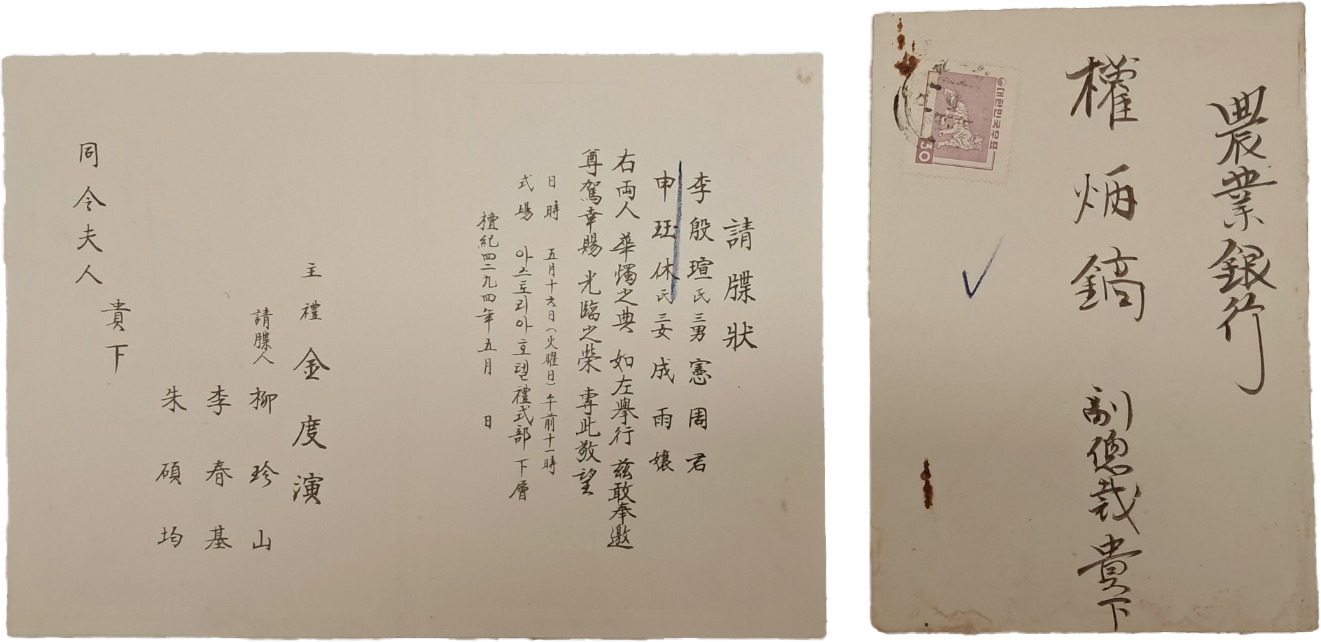 請牒狀
李殷瑄氏 三男 憲周君
申玨休氏 三女 成雨孃
右両人 華燭之典 如左擧行 玆敢奉邀
尊駕幸賜 光臨之榮 專此敬望
日時 五月十六日(火曜日)午前十一時
式場 아스토리아 호텔禮式部 下層
檀紀四二九四年五月 日
主禮 金度演
請牒人 柳珍山
李春基
朱碩均
同令夫人 貴下
農業銀行
權炳鎬 副總裁貴下
대한민국우표
30